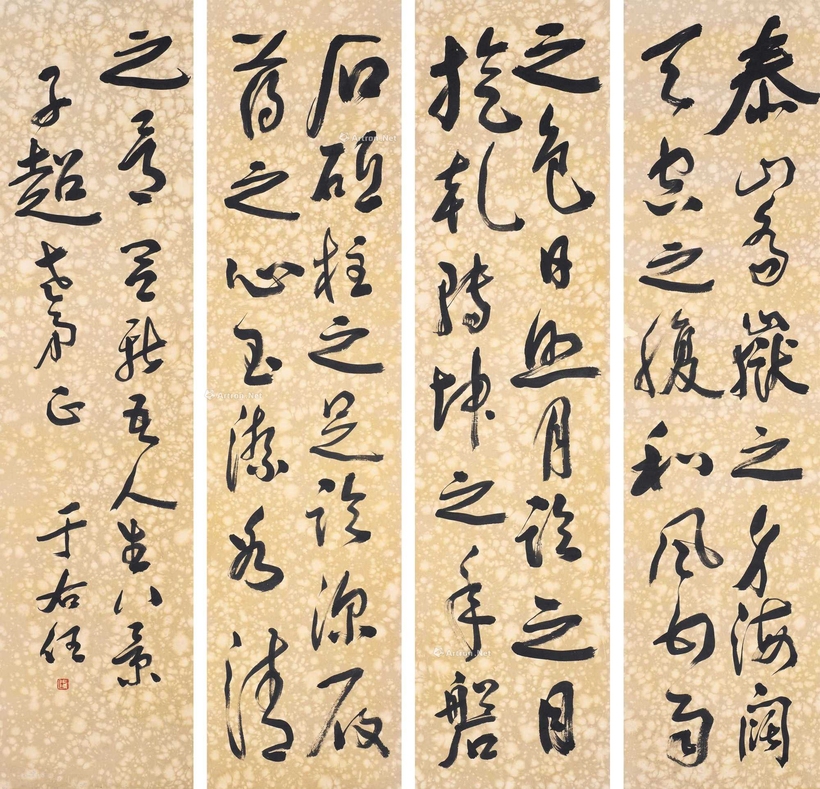 泰山喬嶽之身海闊
天空之腹和風甘雨
之色日照月臨之目
旋乾轉坤之手磐
石砥柱之足臨深履
薄之心玉潔冰清
之骨吾人生八景
子超老弟正 于右任
Artron.Net
Artron.Net
Artron.Net